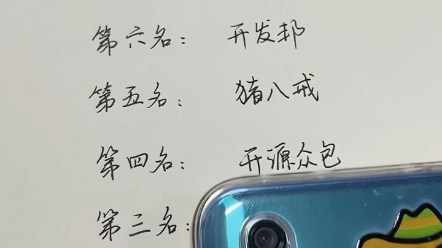 第六名： 开发邦
第五名： 猪八戒
第四名： 开源众包
第三名：